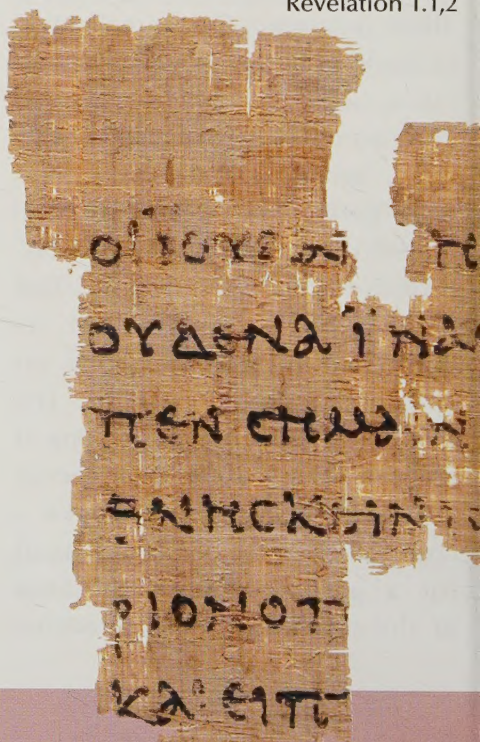 Revelation 1.1,2
ΟΙ ΙΟΥΔΑΙ
ΟΥΔΕΝΑ ΪΝΑ
ΠΕΝ ΣΗΜΑΙΝ
ΘΝΗΣΚΕΙΝ
ΡΙΟΝ Ο Π
ΚΑΙ ΕΙΠ